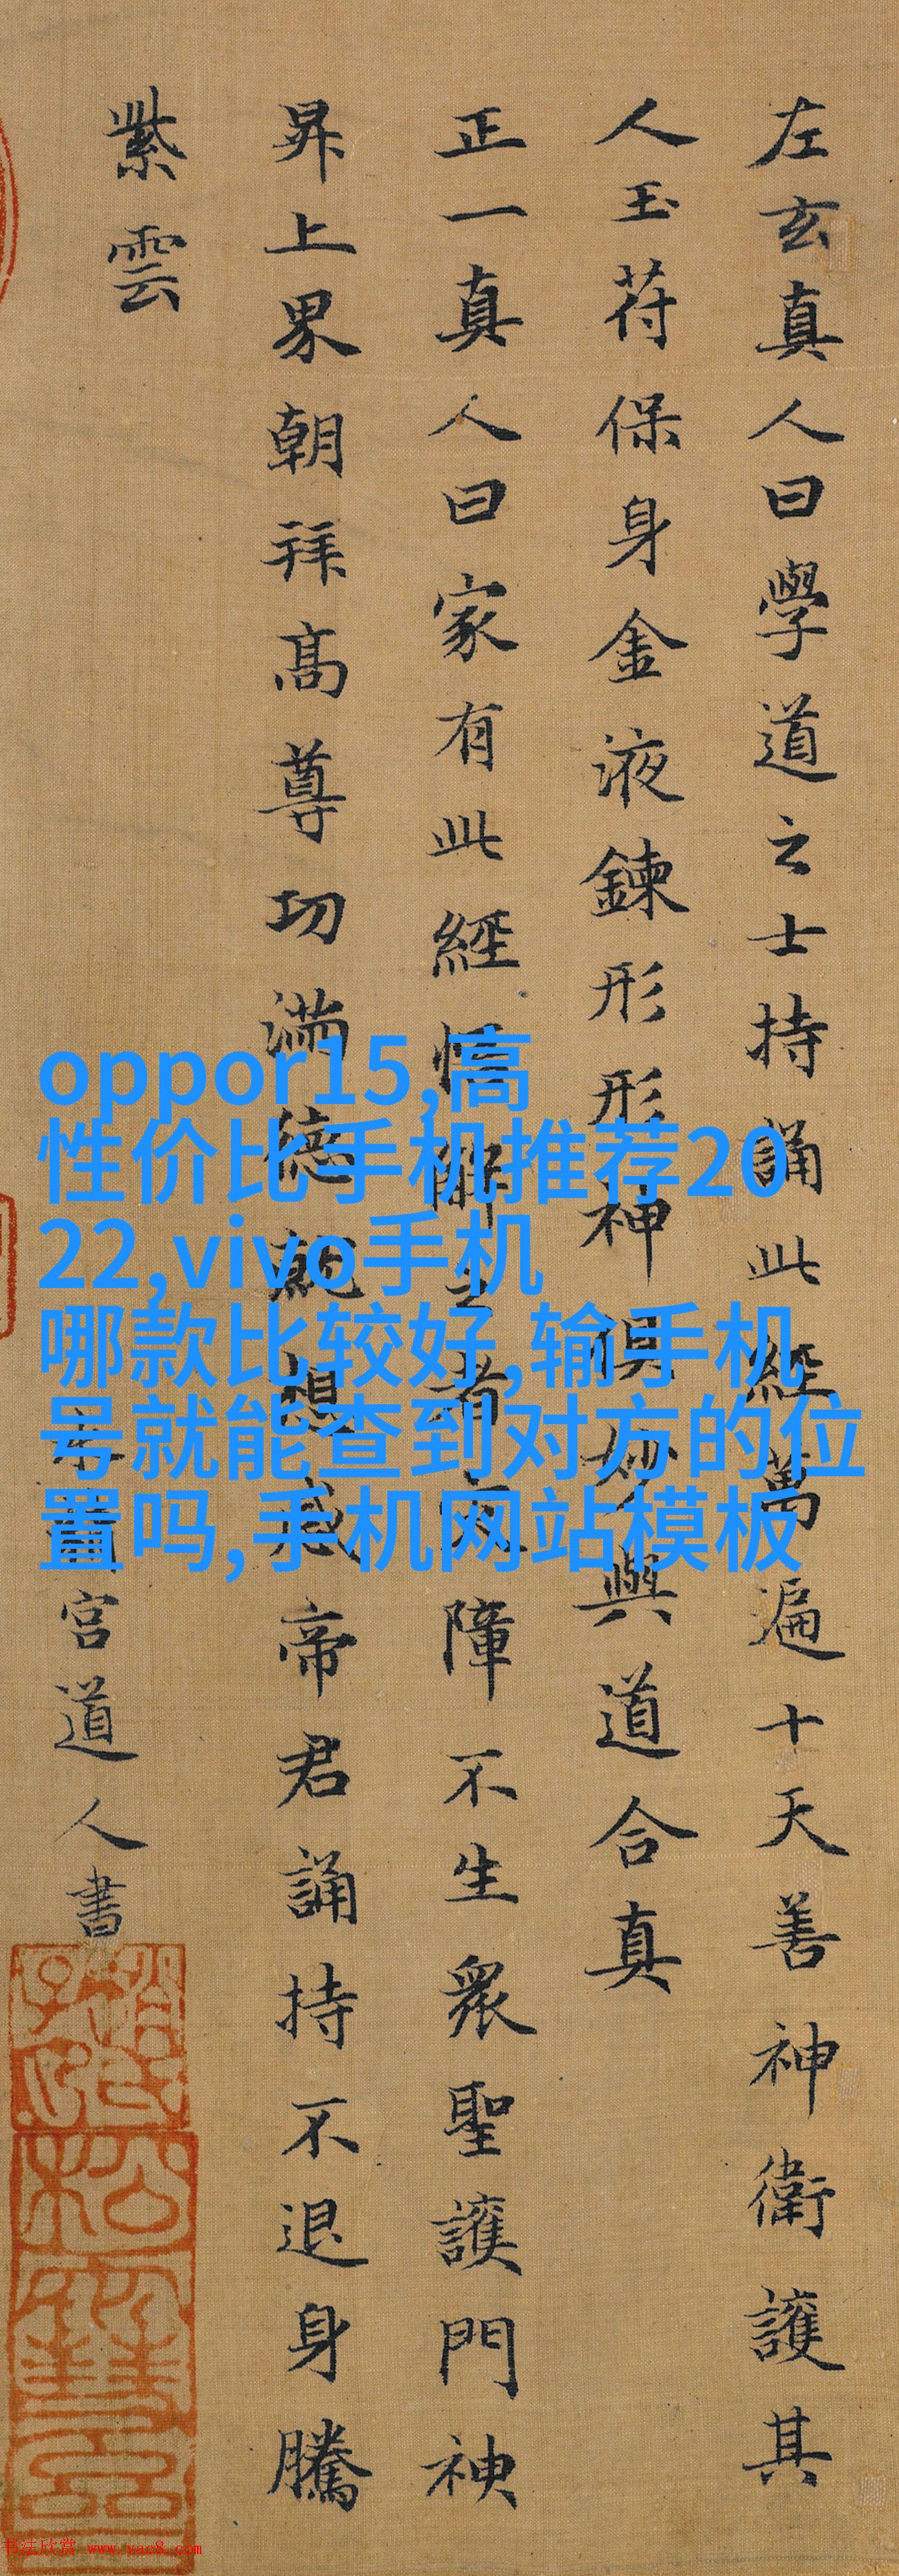 左玄真人曰學道之士持誦此經萬遍十天善神衛護其
人玉苻保身金液鍊形形神俱妙與道合真
正一真人曰家有此經悟解之者灾障不生衆聖護門神
昇上界朝拜高尊功满德就想感帝君誦持不退身騰
紫雲
宫道人書
oppor15,高
性价比手机推荐20
22,vivo手机
哪款比较好,输手机
号就能查到对方的位
置吗,手机网站模板
书法欣赏 www.yac8.com